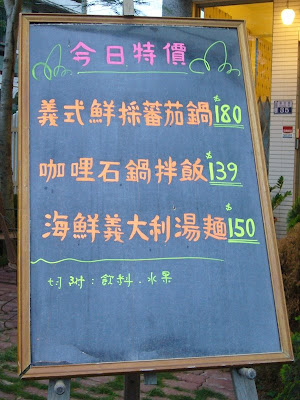 今日特價
義式鮮採蕃茄鍋$180
咖哩石鍋拌飯$139
海鮮義大利湯麵$150
均附:飲料.水果